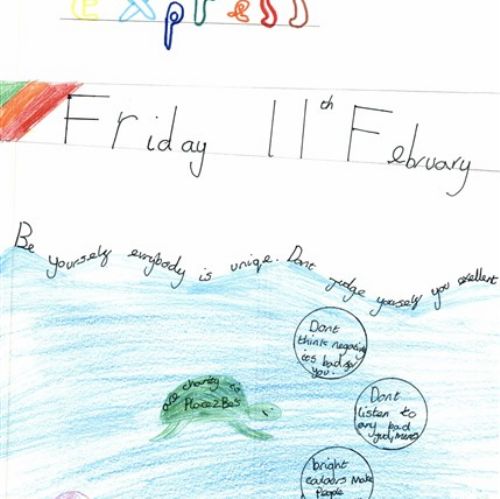 express
Friday 11th February
Be yourself evrybody is uniqe. Dont judge yourself you exellent
Dont
think
bad for
you.
are charity
Dont
listen to
any bad
bright
colours Make
People